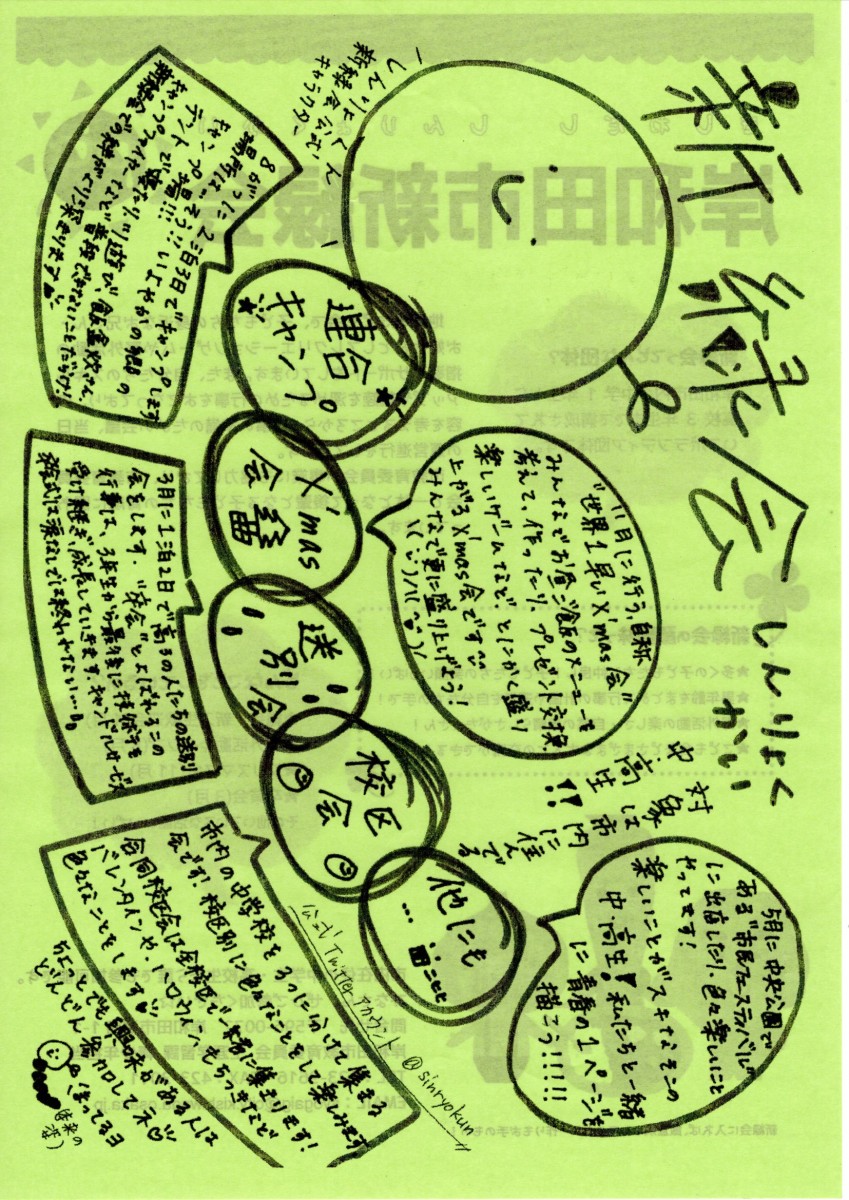 新緑会
しんりょくかい
対象は市内に住んでる
中、高生!!
しんりょくくん
新緑会公式
キャラクター
連合
キャンプ
8がつに2泊3日でキャンプします
場所は、いよやかの郷の
テントで寝たり川遊び、飯盒炊さん、
X'mas
会
11月に行う、自称
"世界1早いX'mas会"
みんなでお昼ご飯のメニューを
考えて、作ったり、プレゼント交換
楽しいゲームなど、とにかく盛り
上がるX'mas会です
みんなで更に盛り上げよう!
送別会
3月に1泊2日で高3の人たちの送別
会をします。"送会"とよばれるこの
行事は、3年生から最後に技術等を
受け継ぎ、成長していきます。キャンドルサービス
葬式は涙なしでは終われない…
校区
会
市内の中学校を3つにわけて集まる
会です!校区別に色んなことをして楽しみます
合同校区会は全校区で一斉に集まります!
バレンタインや、ハロウィン、もちつきなど
色々なことをします♡
ちょことでも興味がある人は
どんどん参加してネ♡
まってるヨ
他にも
…
5月に中央公園で
ある"市民フェスティバル"
に出店したり、色々楽しいこと
やってます!
楽しいことがスキなそこの
中、高生!私たちと一緒
に青春の1ページを
描こう!!!!!
公式Twitterアカウント
@sinryokun